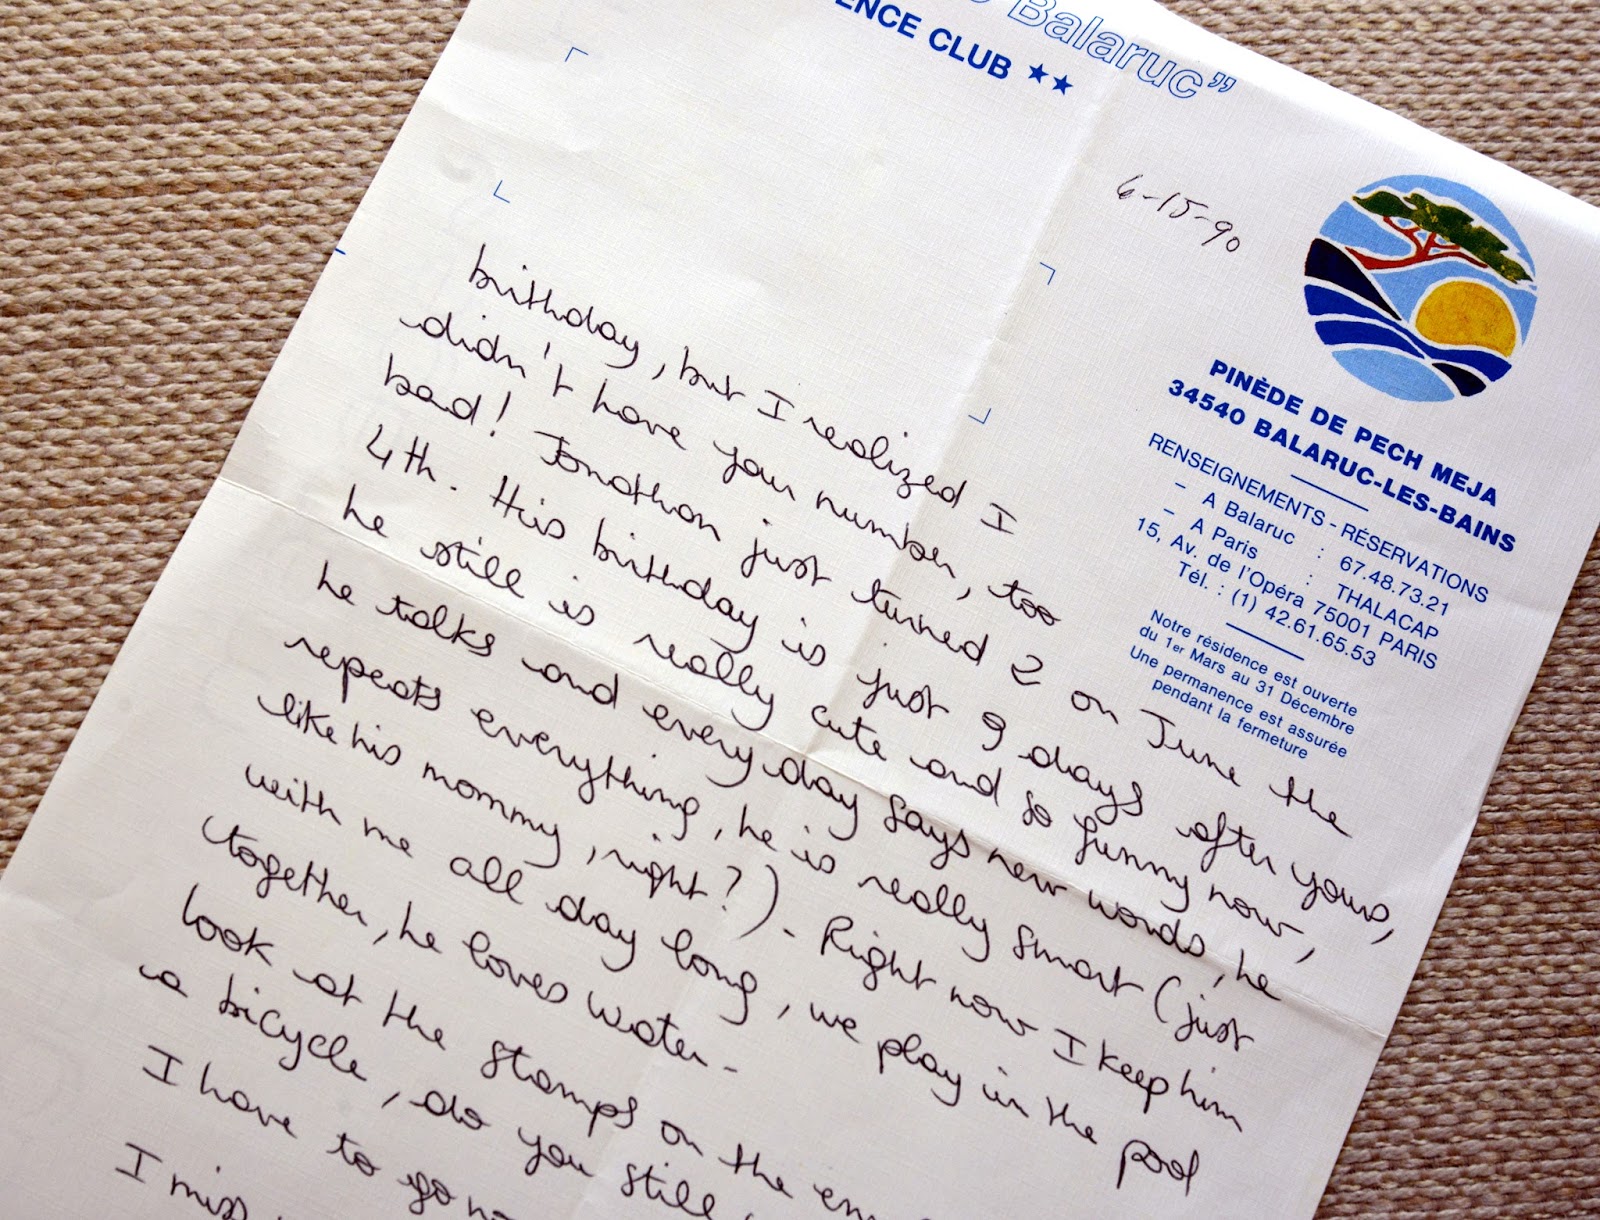 Balaruc”
ENCE CLUB ★★
6-15-90
PINÈDE DE PECH MEJA
34540 BALARUC-LES-BAINS
RENSEIGNEMENTS - RÉSERVATIONS
- A Balaruc : 67.48.73.21
- A Paris : THALACAP
15, Av. de l'Opéra 75001 PARIS
Tél. : (1) 42.61.65.53
Notre résidence est ouverte
du 1er Mars au 31 Décembre
Une permanence est assurée
pendant la fermeture
birthday, but I realized I
didn't have your number, too
bad! Jonathan just turned 2 on June the
4th. His birthday is just 9 days after yours,
he still is really cute and so funny now,
he talks and every day says new words, he
repeats everything, he is really smart (just
like his mommy, right?). Right now I keep him
with me all day long, we play in the pool
together, he loves water.
look at the stamps on the
a bicycle, do you still
I have to go
I miss